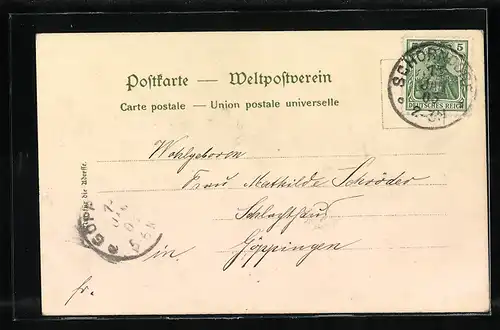 Postkarte — Weltpostverein
Carte postale — Union postale universelle
5
DEUTSCHES REICH
Wohlgeboren
Frau Mathilde Schröder
Schlachthaus
in Göppingen
fr.